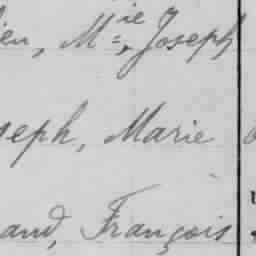 ien, Mie, Joseph
seph, Marie
and, François